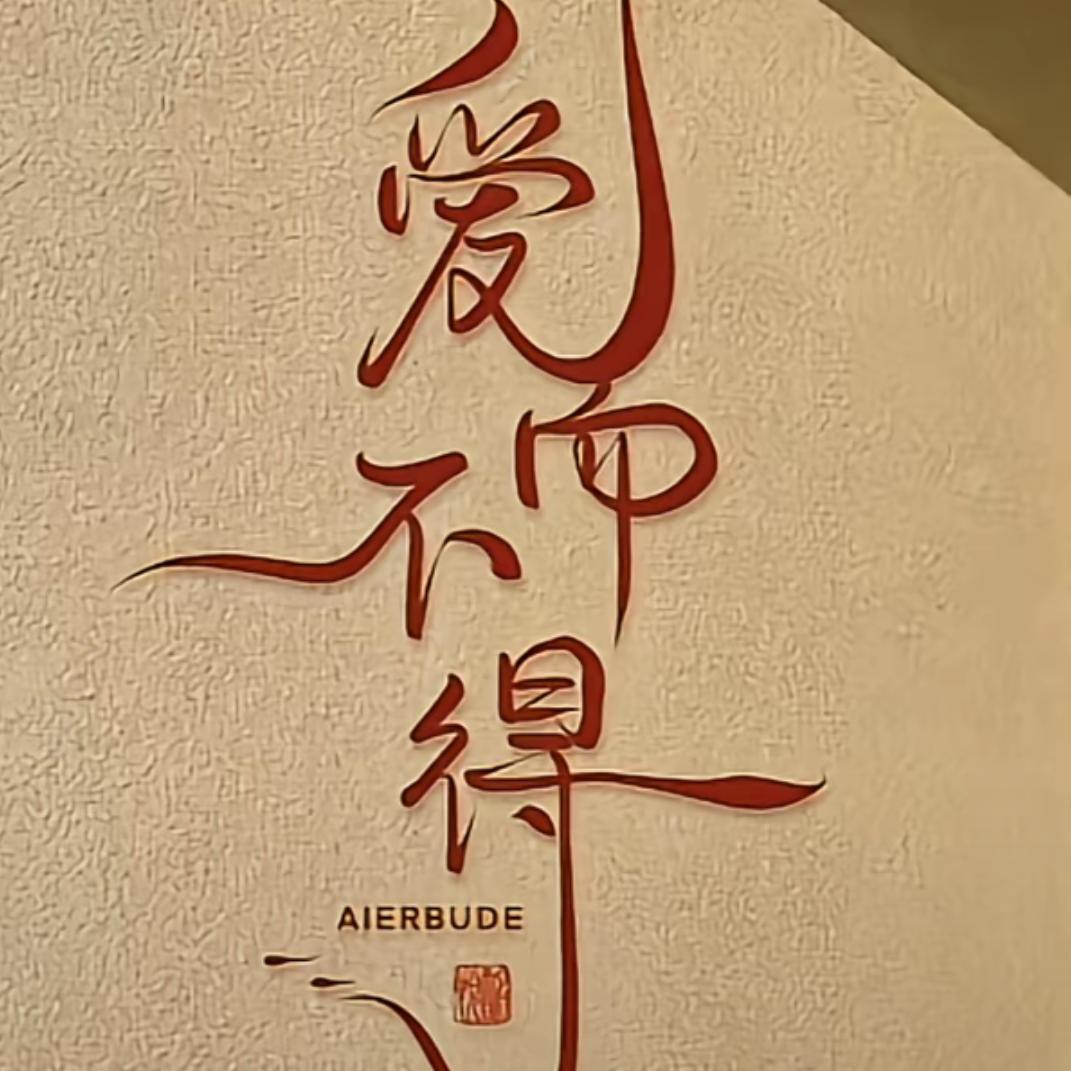 爱而不得
AIERBUDE